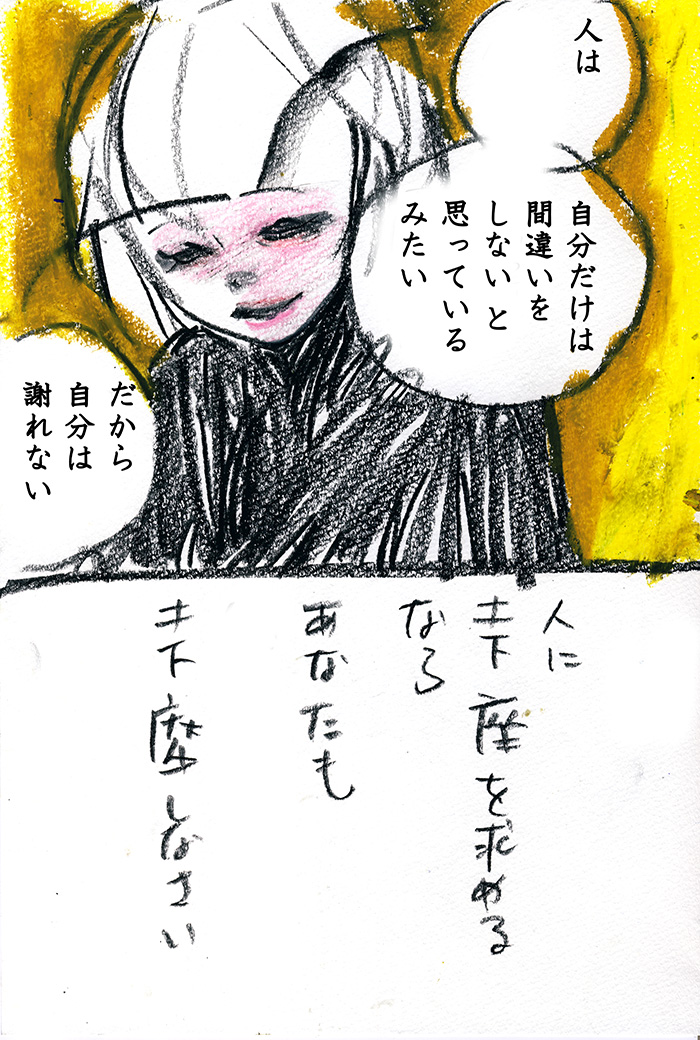 人は
自分だけは
間違いを
しないと
思っている
みたい
だから
自分は
謝れない
人に
土下座を求める
なら
あなたも
土下座しなさい